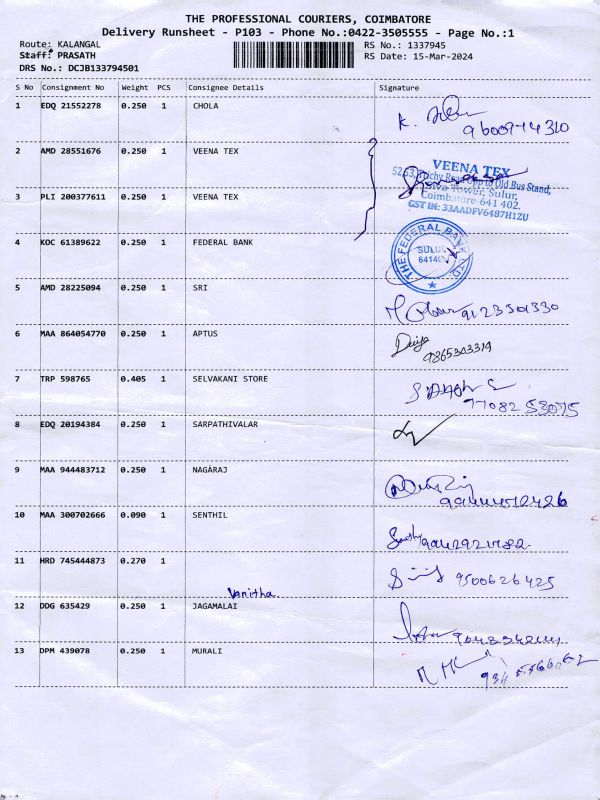 THE PROFESSIONAL COURIERS, COIMBATORE
Delivery Runsheet - P103 - Phone No.:0422-3505555 - Page No.:1
Route: KALANGAL RS No.: 1337945
Staff: PRASATH RS Date: 15-Mar-2024
DRS No.: DCJB133794501
S No Consignment No Weight PCS Consignee Details Signature
1 EDQ 21552278 0.250 1 CHOLA
2 AMD 28551676 0.250 1 VEENA TEX
VEENA TEX
52,63, Trichy Road, Opp to Old Bus Stand,
Tower, Sulur,
Coimbatore-641 402.
GST IN: 33AADFV6487H1ZU
3 PLI 200377611 0.250 1 VEENA TEX
4 KOC 61389622 0.250 1 FEDERAL BANK
THE FEDERAL BANK LTD.
SULUR
5 AMD 28225094 0.250 1 SRI
6 MAA 864054770 0.250 1 APTUS
9865303319
7 TRP 598765 0.405 1 SELVAKANI STORE
77082 53075
8 EDQ 20194384 0.250 1 SARPATHIVALAR
9 MAA 944483712 0.250 1 NAGARAJ
10 MAA 300702666 0.090 1 SENTHIL
11 HRD 745444873 0.270 1
9500626425
Vanitha
12 DDG 635429 0.250 1 JAGAMALAI
13 DPM 439078 0.250 1 MURALI